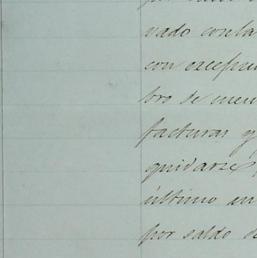 vado conta
con excepci
bro de
facturas y
quidarse
último
por saldo de